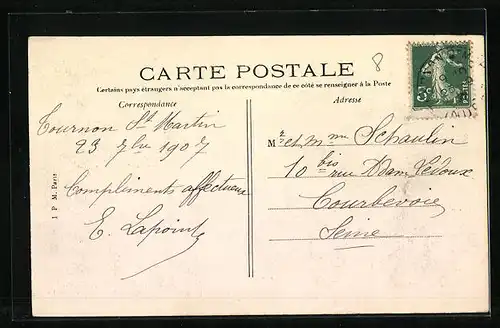 8
CARTE POSTALE
Certains pays étrangers n'acceptant pas la correspondance de ce côté se renseigner à la Poste
Correspondance
Adresse
Tournon St Martin
23 7bre 1907
Compliments affectueux
E. Lapointe
M r et mme Schaulin
10 bis rue Adam Ledoux
Courbevoie
Seine
J P M. Paris
5c